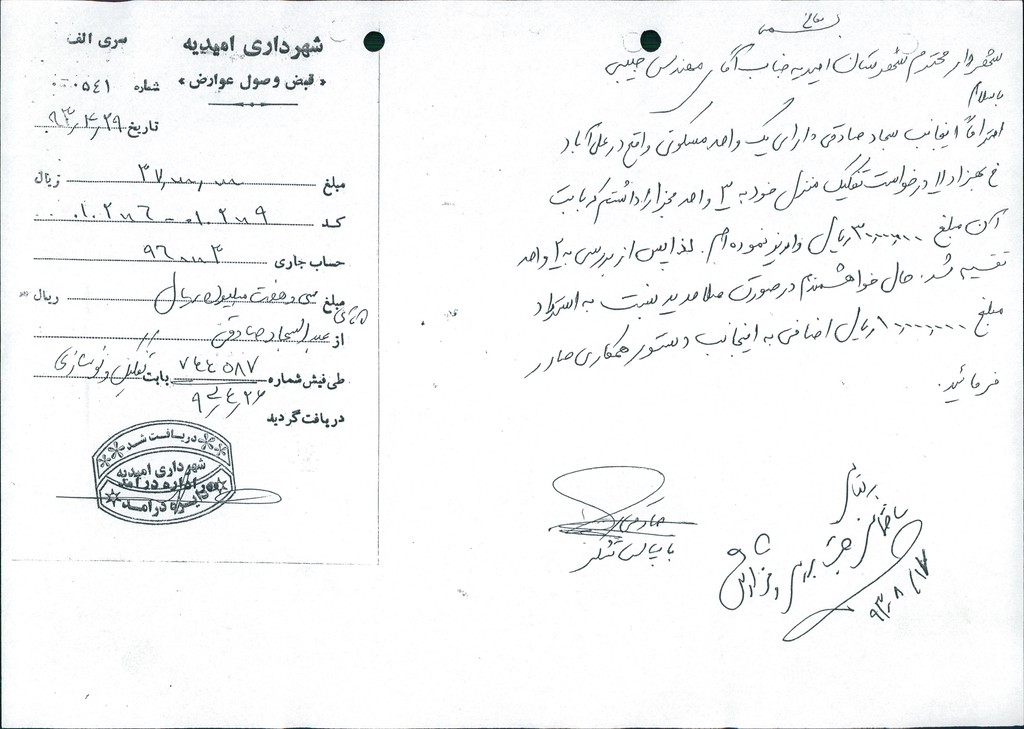 بسمه تعالی
شهردار محترم شهرستان امیدیه جناب آقای مهندس حبیبی
باسلام
احتراماً اینجانب سجاد صادقی دارای یک واحد مسکونی واقع در علی آباد
خ بهزاد ۷ درخواست تفکیک منزل خود به ۳ واحد مجزا را داشتم که بابت
آن مبلغ ۳۰،۰۰۰،۰۰۰ ریال واریز نموده ام. لذا پس از بررسی به ۲ واحد
تقسیم شد. حال خواهشمندم در صورت صلاحدید نسبت به استرداد
مبلغ ۱۰،۰۰۰،۰۰۰ ریال اضافی به اینجانب دستور همکاری صادر
فرمائید.
صادقی
با سپاس تشکر
ساختمانی جهت بررسی و گزارش
۹۳/۸/۱۷
شهرداری امیدیه
سری الف
« قبض وصول عوارض »
شماره ۰۰۰۵۴۱
تاریخ ۹۳/۴/۲۹
مبلغ ۳۷،۰۰۰،۰۰۰ ریال
کد ۰۱۰۲۰۰۹ - ۰۱۰۲۰۰۶
حساب جاری
مبلغ سی و هفت میلیون ریال ریال
از عبدالسجاد صادقی
طی فیش شماره ۷۴۴۰۵۸۷ بابت تفکیک و نوسازی
۹۳/۴/۲۶
دریافت گردید
دریافت شد
شهرداری امیدیه
اداره درآمد
دایره درآمد